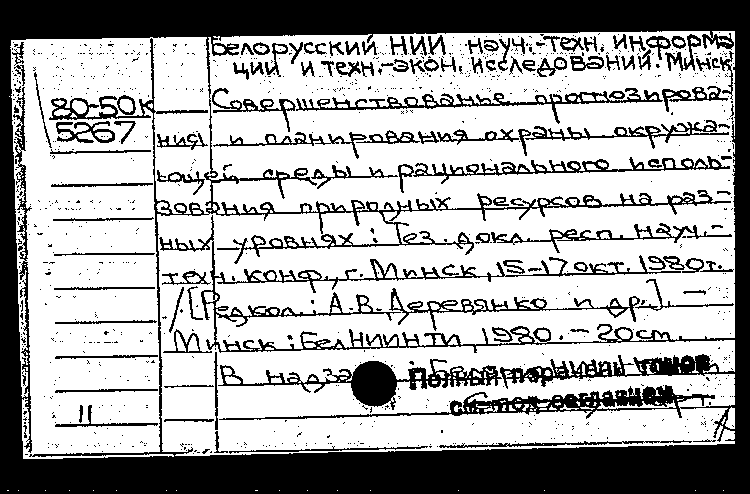 Белорусский НИИ науч.-техн. информа
ции и техн.-экон. исследований. Минск
80-50к
5267
Совершенствованье прогнозирова-
ния и планирования охраны окружа-
ющей среды и рационального исполь-
зования природных ресурсов на раз-
ных уровнях : Тез. докл. респ. науч.-
техн. конф., г. Минск, 15-17 окт. 1980г.
/ [Редкол.: А.В. Деревянко и др.]. —
Минск : БелНИИНТИ, 1980. — 20см.
В надза
Полный перечень томов
см. под заглавием
11